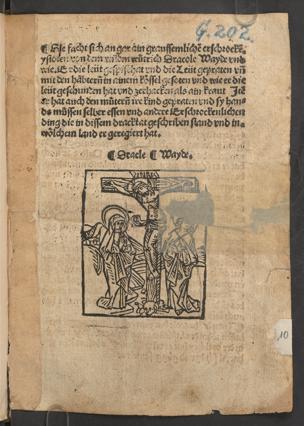 G. 202.
¶ Hie facht sich an gar ain graussemliche erschrocken-
ystorien von dem wilden wütrich Dracole Wayde vnd
wie er die leüt gespisset vnd die Leüt gepraten vñ
mit den häbtern in ainem kössel gesoten vnd wie er die
leüt geschunden hat vnd zerhacken als ain kraut Jtē
er hat auch den mütern ire kind gepraten vnd sy hand
müssen selber essen vnd andere erschrockenlichen
ding die in dissem tracktat geschriben stand vnd in
wölchem land er geregiert hat.
¶ Dracle ¶ Wayde.
10